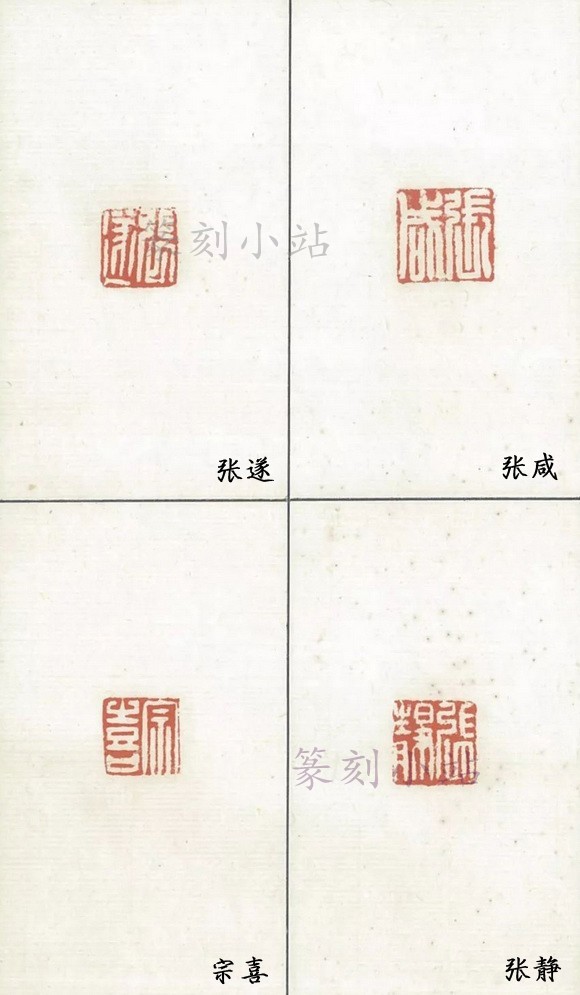 篆刻小站
张遂
张咸
篆刻小站
宗喜
张静